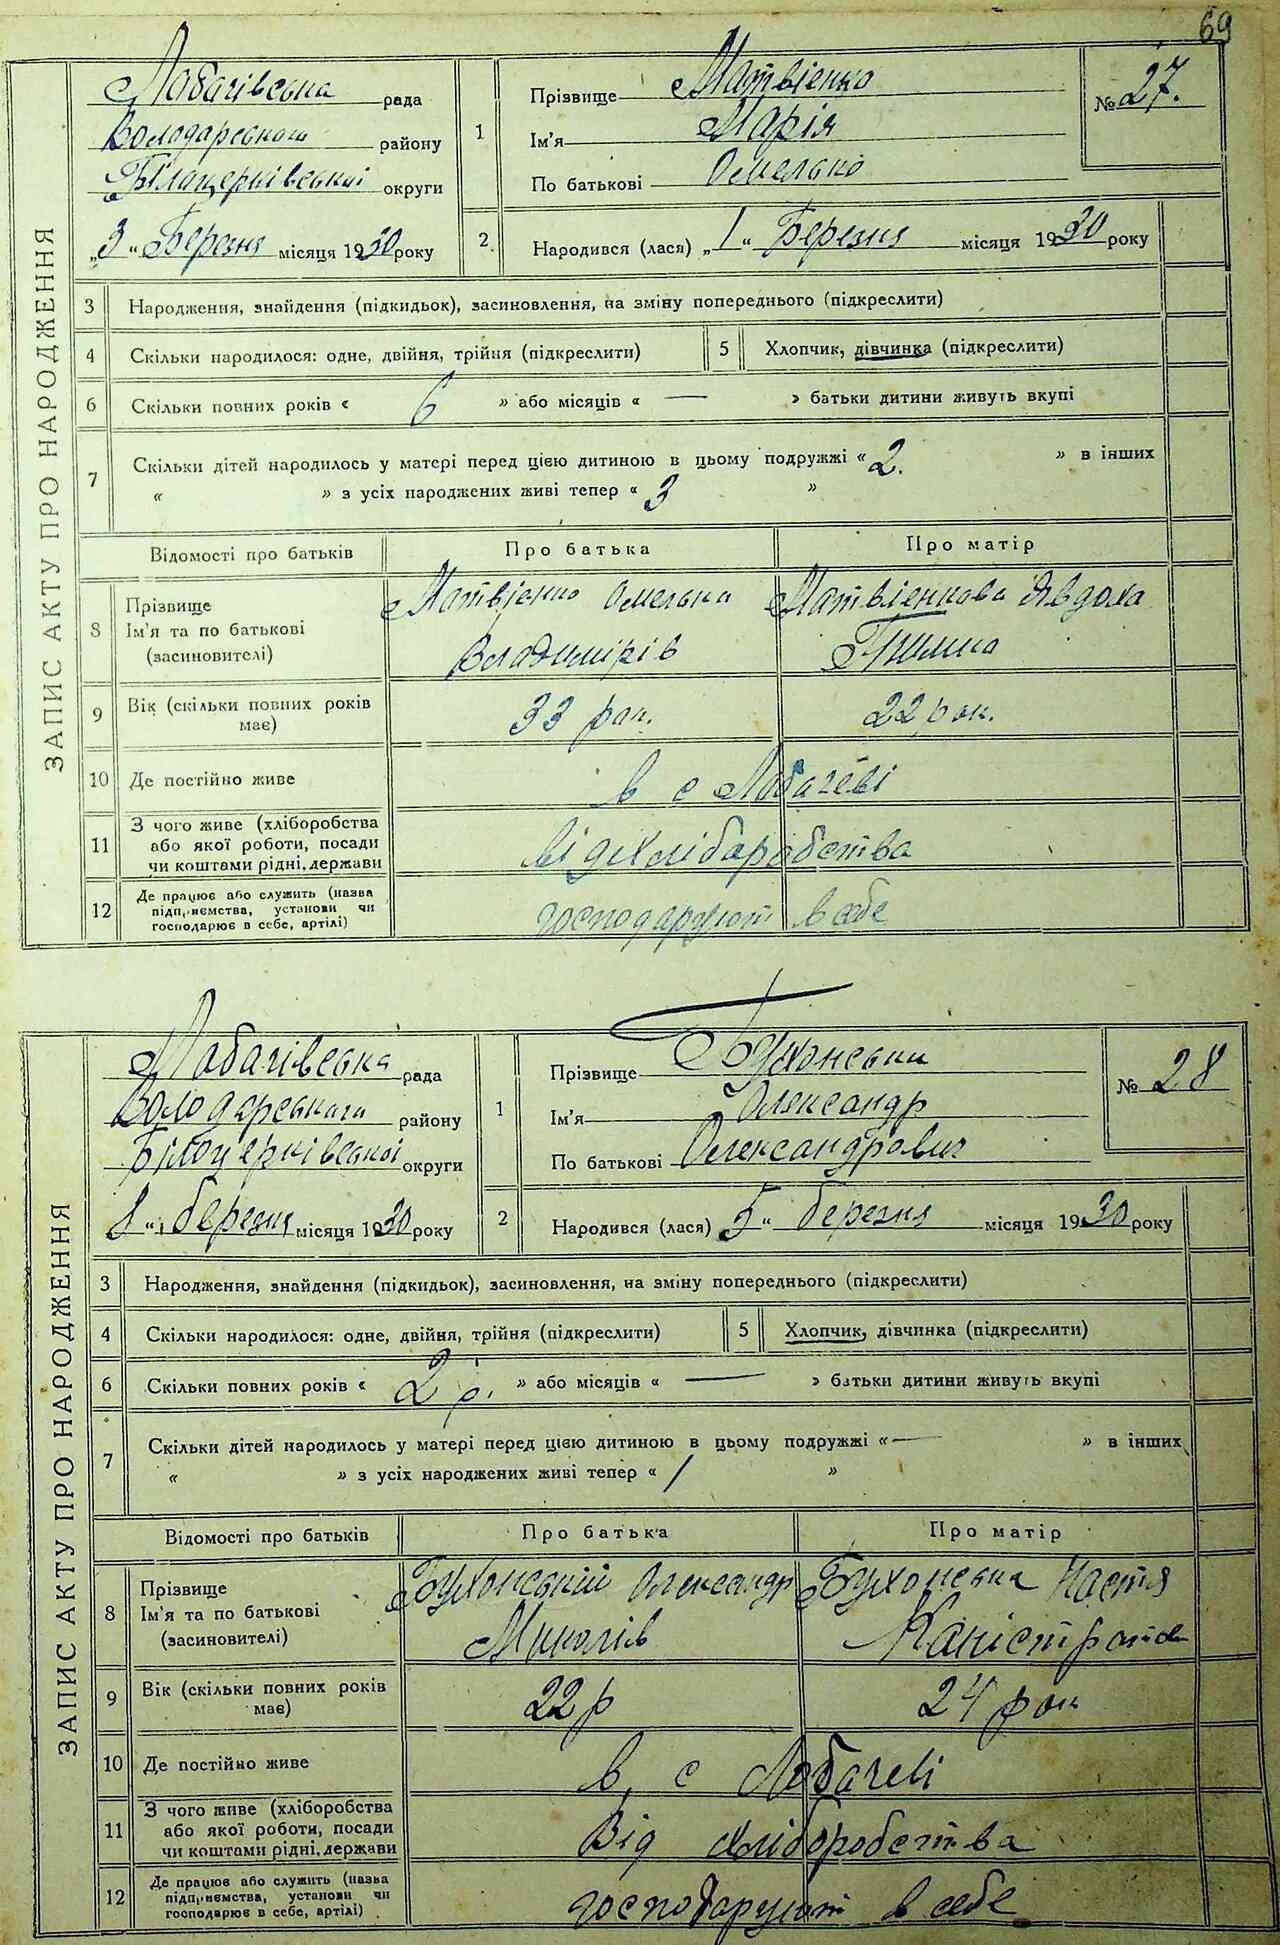 69
ЗАПИС АКТУ ПРО НАРОДЖЕННЯ
Лобачівська рада
Володарського району
Білоцерківської округи
„3“ Березня місяця 1930 року
1 Прізвище Матвієнко
Ім'я Марія
По батькові Омелько
№ 27.
2 Народився (лася) „1“ Березня місяця 1930 року
3 Народження, знайдення (підкидьок), засиновлення, на зміну попереднього (підкреслити)
4 Скільки народилося: одне, двійня, трійня (підкреслити) 5 Хлопчик, дівчинка (підкреслити)
6 Скільки повних років « 6 » або місяців « — » батьки дитини живуть вкупі
7 Скільки дітей народилось у матері перед цією дитиною в цьому подружжі « 2. » в інших
« » з усіх народжених живі тепер « 3 »
Відомості про батьків Про батька Про матір
8 Прізвище
Ім'я та по батькові
(засиновителі)
Матвієнко Омелько
Владимірів
Матвієнкова Явдоха
9 Вік (скільки повних років
має)
33 рок. 22 рок.
10 Де постійно живе в с Лобачеві
11 З чого живе (хліборобства
або якої роботи, посади
чи коштами рідні, держави
від хліборобства
12 Де працює або служить (назва
підприємства, установи чи
господарює в себе, артілі)
господарюют в себе
ЗАПИС АКТУ ПРО НАРОДЖЕННЯ
Лобачівська рада
Володарського району
Білоцерківської округи
8 „ березня місяця 1930 року
1 Прізвище Бухонськи
Ім'я Олександр
По батькові Олександрович
№ 28
2 Народився (лася) 5 “ березня місяця 1930 року
3 Народження, знайдення (підкидьок), засиновлення, на зміну попереднього (підкреслити)
4 Скільки народилося: одне, двійня, трійня (підкреслити) 5 Хлопчик, дівчинка (підкреслити)
6 Скільки повних років « 2 р. » або місяців « — » батьки дитини живуть вкупі
7 Скільки дітей народилось у матері перед цією дитиною в цьому подружжі « — » в інших
« » з усіх народжених живі тепер « 1 »
Відомості про батьків Про батька Про матір
8 Прізвище
Ім'я та по батькові
(засиновителі)
Бухонський Олександр
Миколів
Бухонська Настя
Каністратов
9 Вік (скільки повних років
має)
22 р 24 рок
10 Де постійно живе в с Лобачеві
11 З чого живе (хліборобства
або якої роботи, посади
чи коштами рідні, держави
Від хліборобства
12 Де працює або служить (назва
підприємства, установи чи
господарює в себе, артілі)
господарюют в себе